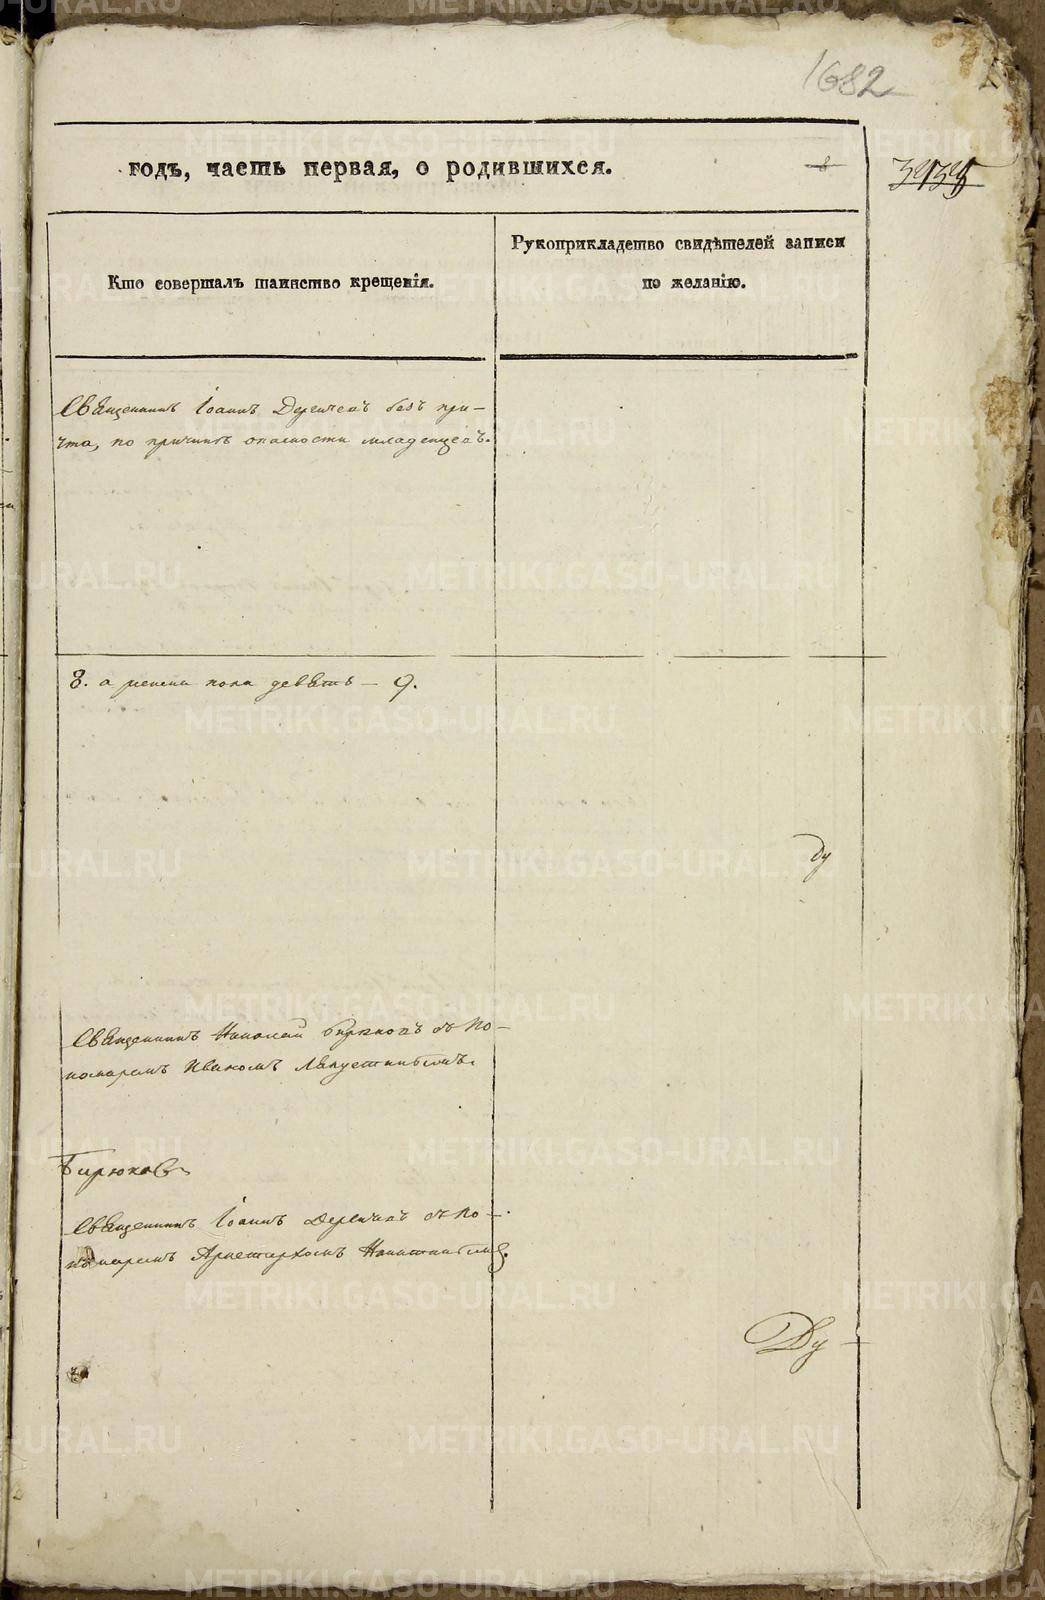 1682
годъ, часть первая, о родившихся.
8
Кто совершалъ таинство крещенія.
Рукоприкладство свидѣтелей записи
по желанію.
Священникъ Іоаннъ безъ при-
чта, по причинѣ опасности младенцевъ.
8. а женска пола девять — 9.
Священникъ Николай Бирюковъ съ по-
номаремъ Иваномъ
Бирюковъ
Священникъ Іоаннъ съ по-
номаремъ Аристархомъ Никитинымъ.
METRIKI.GASO-URAL.RU